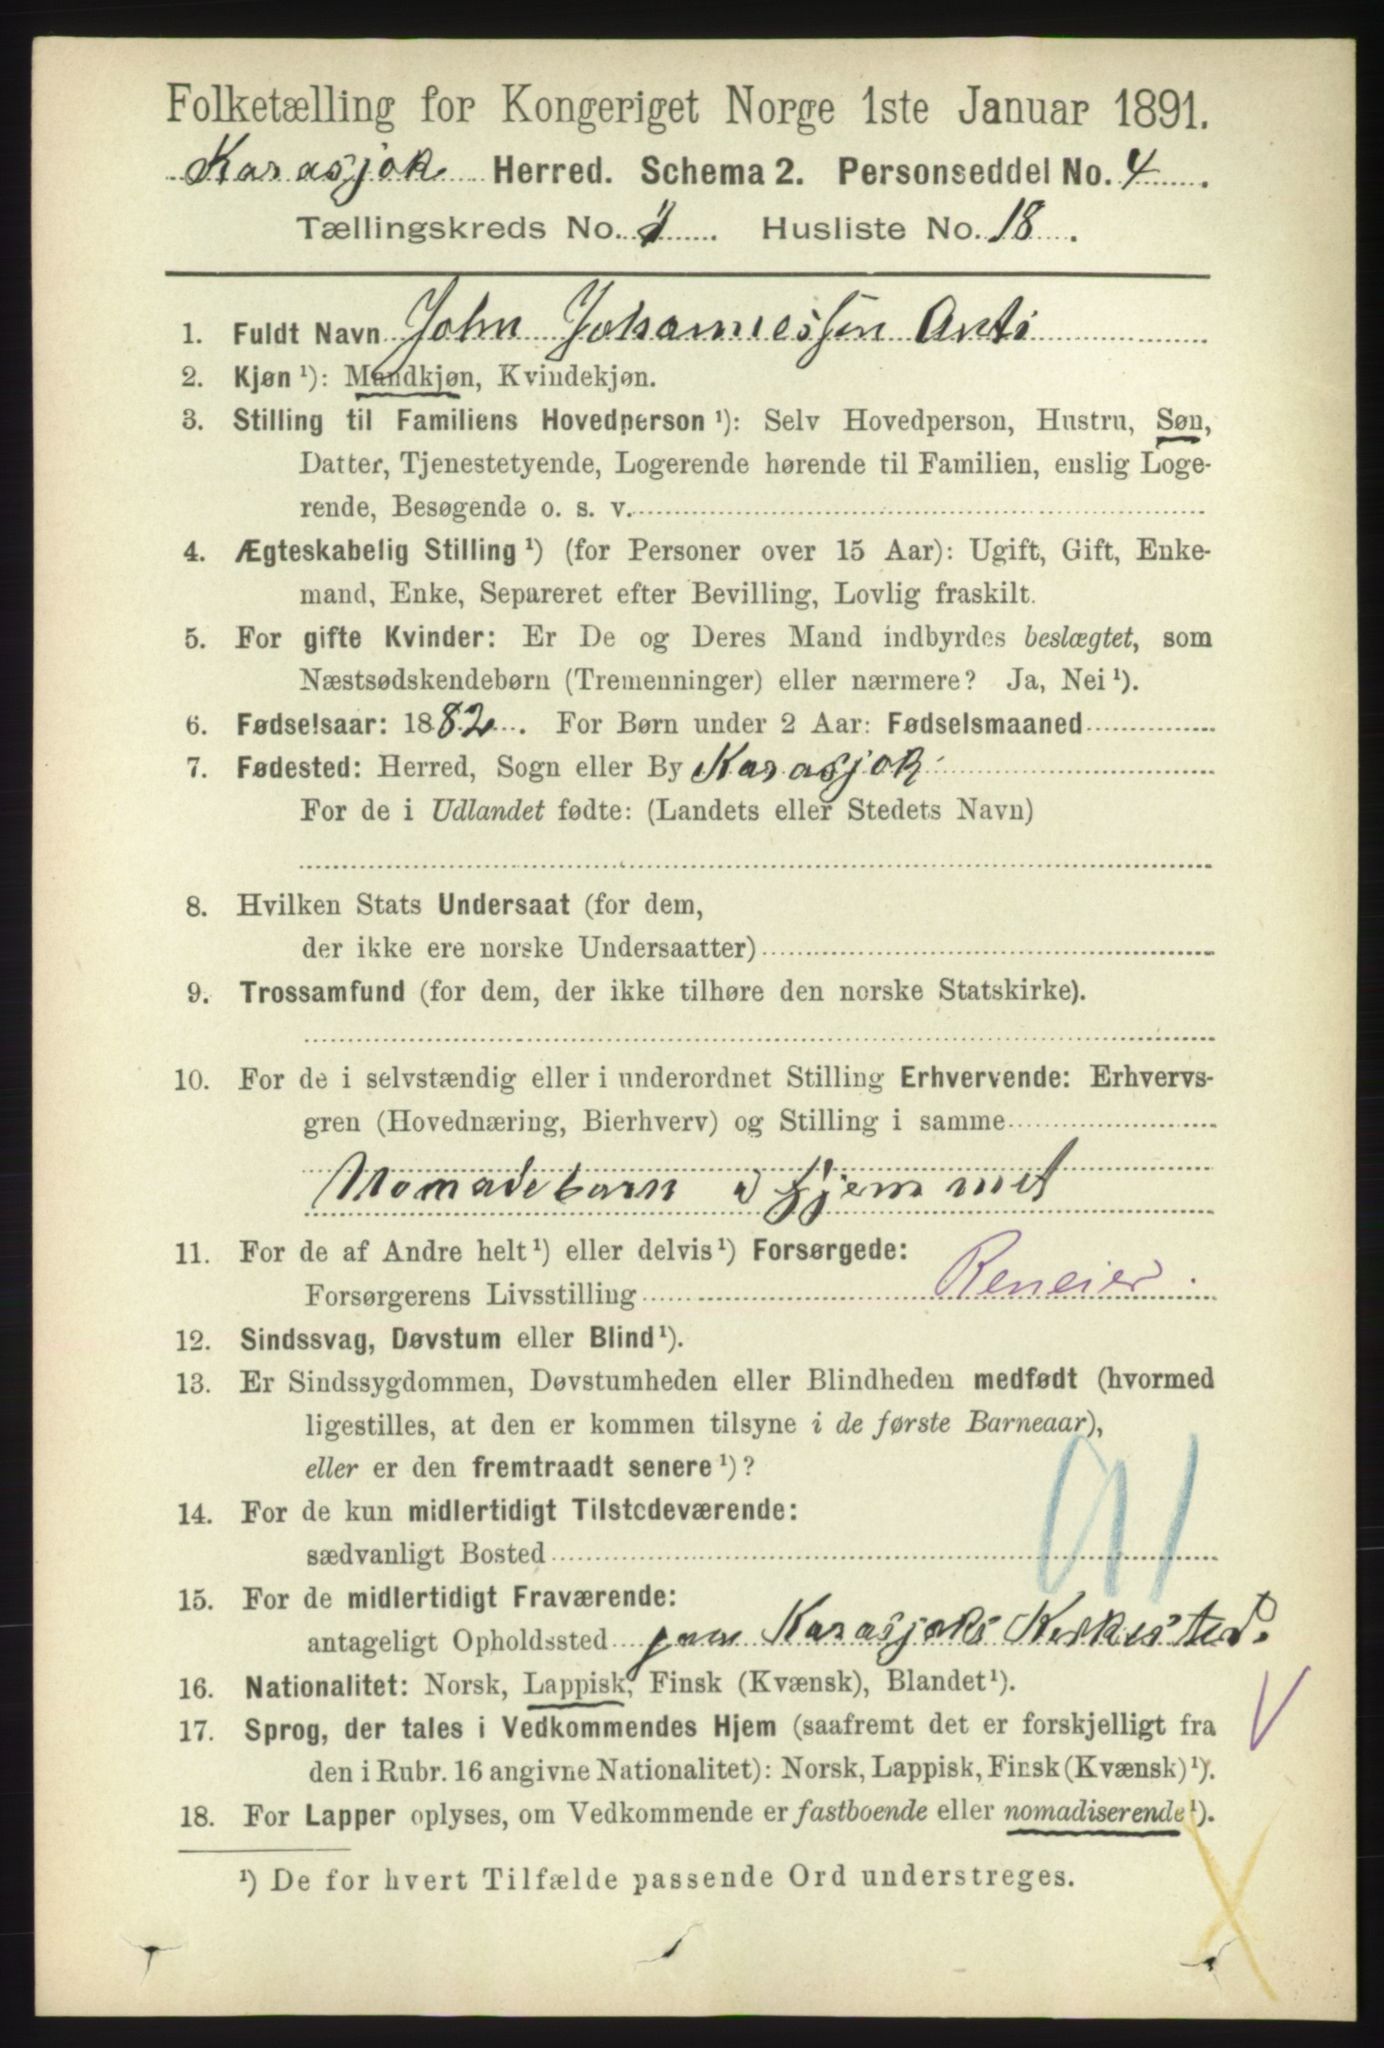 Folketælling for Kongeriget Norge 1ste Januar 1891.
Karasjok Herred. Schema 2. Personseddel No. 4.
Tællingskreds No. 1. Husliste No. 18.
1. Fuldt Navn John Johannessen Anti
2. Kjøn ¹): Mandkjøn, Kvindekjøn.
3. Stilling til Familiens Hovedperson ¹): Selv Hovedperson, Hustru, Søn,
Datter, Tjenestetyende, Logerende hørende til Familien, enslig Loge-
rende, Besøgende o. s. v.
4. Ægteskabelig Stilling ¹) (for Personer over 15 Aar): Ugift, Gift, Enke-
mand, Enke, Separeret efter Bevilling, Lovlig fraskilt.
5. For gifte Kvinder: Er De og Deres Mand indbyrdes beslægtet, som
Næstsødskendebørn (Tremenninger) eller nærmere? Ja, Nei ¹).
6. Fødselsaar: 1882. For Børn under 2 Aar: Fødselsmaaned
7. Fødested: Herred, Sogn eller By Karasjok
For de i Udlandet fødte: (Landets eller Stedets Navn)
8. Hvilken Stats Undersaat (for dem,
der ikke ere norske Undersaatter)
9. Trossamfund (for dem, der ikke tilhøre den norske Statskirke).
10. For de i selvstændig eller i underordnet Stilling Erhvervende: Erhvervs-
gren (Hovednæring, Bierhverv) og Stilling i samme
Nomadebarn i Hjemmet
11. For de af Andre helt ¹) eller delvis ¹) Forsørgede:
Forsørgerens Livsstilling Reneier.
12. Sindssvag, Døvstum eller Blind ¹).
13. Er Sindssygdommen, Døvstumheden eller Blindheden medfødt (hvormed
ligestilles, at den er kommen tilsyne i de første Barneaar),
eller er den fremtraadt senere ¹)?
14. For de kun midlertidigt Tilstedeværende:
sædvanligt Bosted
91
15. For de midlertidigt Fraværende:
antageligt Opholdssted Karasjoks Kirkested.
16. Nationalitet: Norsk, Lappisk, Finsk (Kvænsk), Blandet ¹).
17. Sprog, der tales i Vedkommendes Hjem (saafremt det er forskjelligt fra
den i Rubr. 16 angivne Nationalitet): Norsk, Lappisk, Finsk (Kvænsk) ¹).
18. For Lapper oplyses, om Vedkommende er fastboende eller nomadiserende ¹).
¹) De for hvert Tilfælde passende Ord understreges.